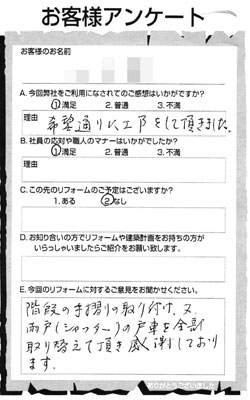 お客様アンケート
お客様のお名前
A. 今回弊社をご利用になされてのご感想はいかがですか？
①満足 2. 普通 3. 不満
理由
希望通りに工事をして頂きました。
B. 社員の応対や職人のマナーはいかがでしたか？
①満足 2. 普通 3. 不満
理由
C. この先のリフォームのご予定はございますか？
1. ある ②なし
D. お知り合いの方でリフォームや建築計画をお持ちの方が
いらっしゃいましたらご紹介をお願い致します。
E. 今回のリフォームに対するご意見をお聞かせください。
階段の手摺りの取り付け、又、
雨戸(シャッター)の戸車を全部
取り替えて頂き感謝しており
ます。
ありがとうございました